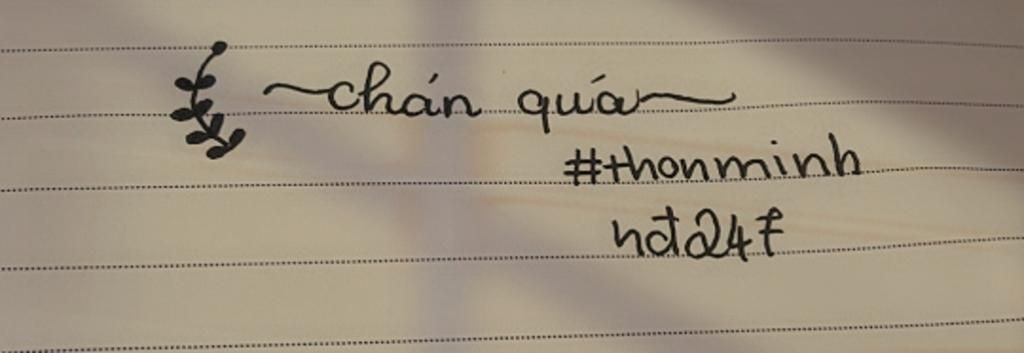 ~chán quá~
#thonminh
hđ247